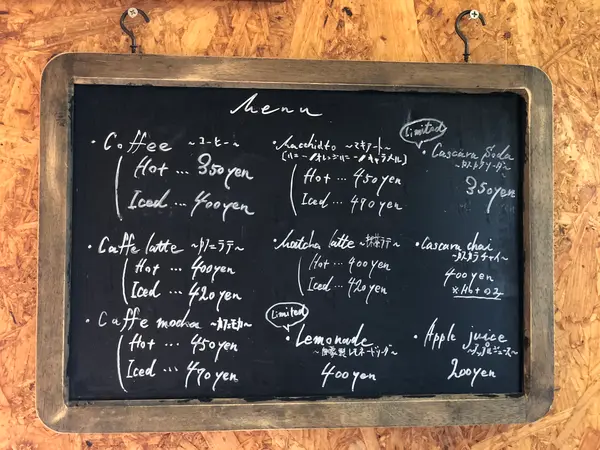 Menu
・Coffee ～コーヒー～
Hot … 350yen
Iced … 400yen
・Caffe latte ～カフェラテ～
Hot … 400yen
Iced … 420yen
・Caffe mocha ～カフェモカ～
Hot … 450yen
Iced … 470yen
・Macchiato ～マキアート～
Hot … 450yen
Iced … 470yen
・Matcha latte ～抹茶ラテ～
Hot … 400yen
Iced … 420yen
Limited
・Lemonade
～自家製レモネードソーダ～
400yen
Limited
・Cascara Soda
～カスカラソーダ～
350yen
・Cascara chai
～カスカラチャイ～
400yen
※Hotのみ
・Apple juice
～アップルジュース～
200yen